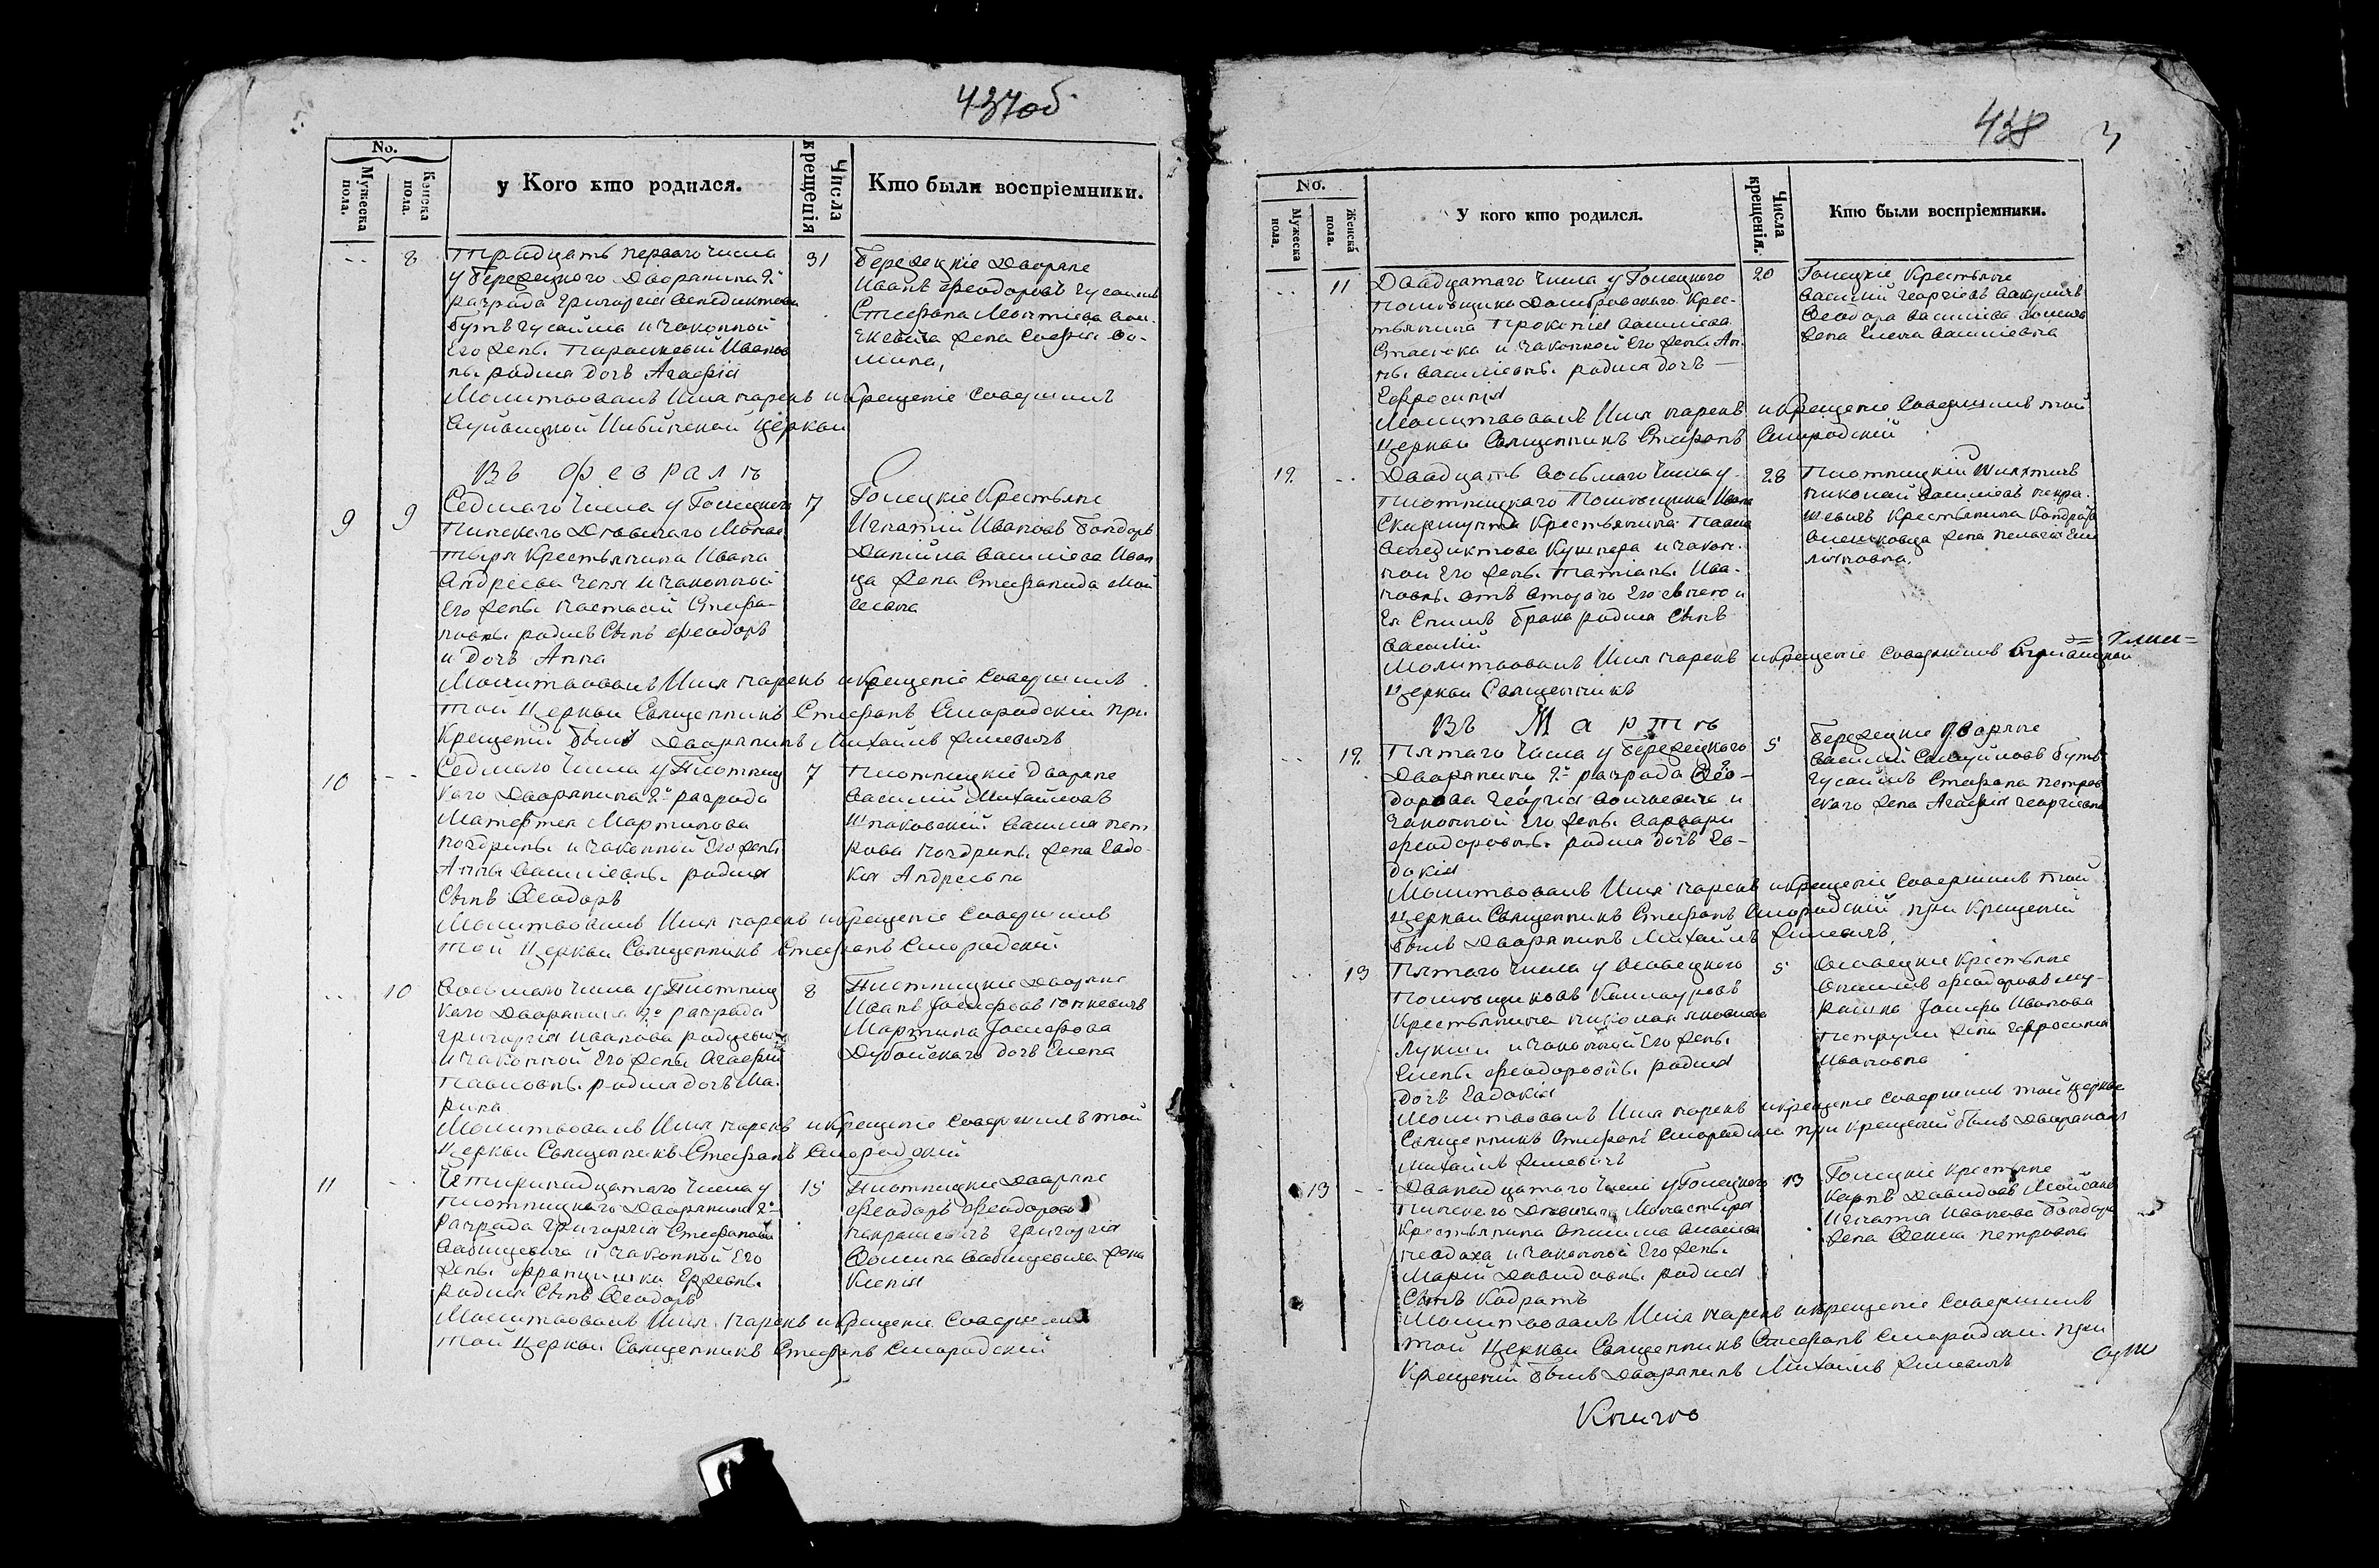 437об
No.
Мужеска пола.
Женска пола.
у Кого кто родился.
Числа крещенія
Кто были воспріемники.
8
Тридцать перваго числа
у Бережецкого Дворянина 2го
разряда Григорія Венедиктова
Бутъ Гусаима и законной
Его жены Параскевіи Иванов
ны родися дочь Агафія
31
Бережецкіе Дворяне
Иванъ Феодоровъ Гусаимъ
Стефана
жена Софія Фо-
мина,
Молитвовалъ Имя нарекъ и Крещеніе Совершилъ
Церкви
Въ Февралѣ
9
9
Седмаго Числа у Гонецкого
Пинского Дѣвичаго Монас
тыря Крестьянина Ивана
Андреева и законной
Его жены Настасіи Стефа-
новны родися Сынъ Феодоръ
и дочь Анна
7
Гонецкіе Крестьяне
Игнатій Ивановъ Бондарь
Даніила Василіева Иван
ца жена Стефанида Мой
сеевна
Молитвовалъ Имя нарекъ и Крещеніе Совершилъ
той Церкви Священникъ Стефанъ Смородскій при
Крещеніи былъ Дворянинъ Михаилъ
10
Седмаго Числа у Плотниц
кого Дворянина 2го разряда
Матфея Мартинова
Ноздрины и законной Его жены
Анны Василіевны родися
Сынъ Феодоръ
7
Плотницкіе Дворяне
Василій Михайловъ
Шпаковскій Василія Пет
рова Ноздрины жена Евдо
кія Андреевна
Молитвовалъ Имя нарекъ и Крещеніе Совершилъ
той Церкви Священникъ Стефанъ Смородскій
10
Восьмаго Числа у Плотниц
кого Дворянина 2го разряда
Григорія Иванова
и законной Его жены Агафіи
Павловны родися дочь Ма-
рина
8
Плотницкіе Дворяне
Иванъ Іосифовъ Юшкевичъ
Мартина Іосифова
Дубойского дочь Елена
Молитвовалъ Имя нарекъ и Крещеніе Совершилъ той
Церкви Священникъ Стефанъ Смородскій
11
Четиринадцатаго Числа у
Плотницкого Дворянина 2го
Разряда Григорія Стефанова
Бабицевича и законной Его
жены Францишки
родися Сынъ Феодоръ
15
Плотницкіе Дворяне
Феодоръ Феодоровъ
Некрашевичъ Григорія
Фомина Бабицевича жена
Ксенія
Молитвовалъ Имя нарекъ и Крещеніе Совершилъ
той Церкви Священникъ Стефанъ Смородскій
438
3
No.
Мужеска пола.
Женска пола.
У кого кто родился.
Числа крещенія.
Кто были воспріемники.
11
Двадцатаго Числа у Гонецкого
Помѣщика Домбровского Крес-
тьянина Прокопія Василіева
и законной Его жены Ан-
ны Василіевны родися дочь
Ефросинія
20
Гонецкіе Крестьяне
Василій Георгіевъ
Феодора Василіева
жена Елена Василіевна
Молитвовалъ Имя нарекъ и Крещеніе Совершилъ той
Церкви Священникъ Стефанъ Смородскій
12
Двадцать восьмаго Числа у
Плотницкого Помѣщика Ивана
Скирмунта Крестьянина Павла
Венедиктова Кушнера и закон-
ной Его жены Татіаны Ива-
новны отъ втораго Его съ нею и
Ея Снимъ брака родися Сынъ
Василій
28
Плотницкій Шляхтичъ
Николай Василіевъ Некра-
шевичъ Крестьянина Кондрата
жена Пелагія Еми
ліановна.
Молитвовалъ Имя нарекъ и Крещеніе Совершилъ
Церкви Священникъ
Въ Мартѣ
12
Пятаго Числа у Бережецкого
Дворянина 2го разряда Фео-
дорова Георгія Войтевича и
законной Его жены Варвари
Феодоровны родися дочь Ев-
докія
5
Бережецкіе Дворяне
Василій Самуйловъ Бутъ
Гусаимъ Стефана Петров
ского жена Агафія Георгіевна
Молитвовалъ Имя нарекъ и Крещеніе Совершилъ той
Церкви Священникъ Стефанъ Смородскій при Крещеніи
былъ Дворянинъ Михаилъ
13
Пятаго Числа у Особецкого
Помѣщиковъ
Крестьянина Николая Яковлева
Лукши и законной Его жены
Елены Феодоровны родися
дочь Евдокія
5
Особецкіе Крестьяне
Феодоровъ
Іосифа Иванова
Петрули жена Ефросинія
Ивановна
Молитвовалъ Имя нарекъ и крещеніе совершилъ той церкви
Священникъ Стефанъ Смородскій при крещеніи былъ Дворянинъ
Михаилъ
13
Дванадцатаго Числа у Гонецкого
Пинского Дѣвичаго Монастыря
Крестьянина
и законной Его жены
Маріи Давидовны родися
Сынъ Кодратъ
13
Гонецкіе Крестьяне
Карпъ Давидовъ
Игнатія Иванова Бондаря
жена Фекла Петровна
Молитвовалъ Имя нарекъ и крещеніе Совершилъ
той Церкви Священникъ Стефанъ Смородскій при
Крещеніи былъ Дворянинъ Михаилъ